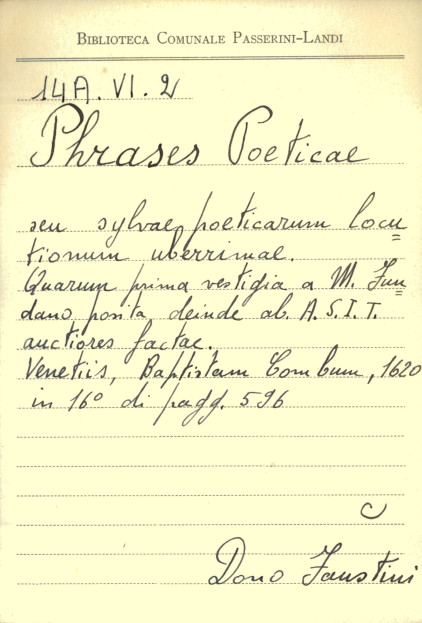 BIBLIOTECA COMUNALE PASSERINI-LANDI
14A. VI. 2
Phrases Poeticae
seu sylvae poeticarum locu=
tionum uberrimae.
Quarum prima vestigia a M. Fun=
dano posita, deinde ab. A. S. I. T.
auctiores factae.
Venetiis, Baptistam Combum, 1620
in 16º di pagg. 596
C
Dono Faustini